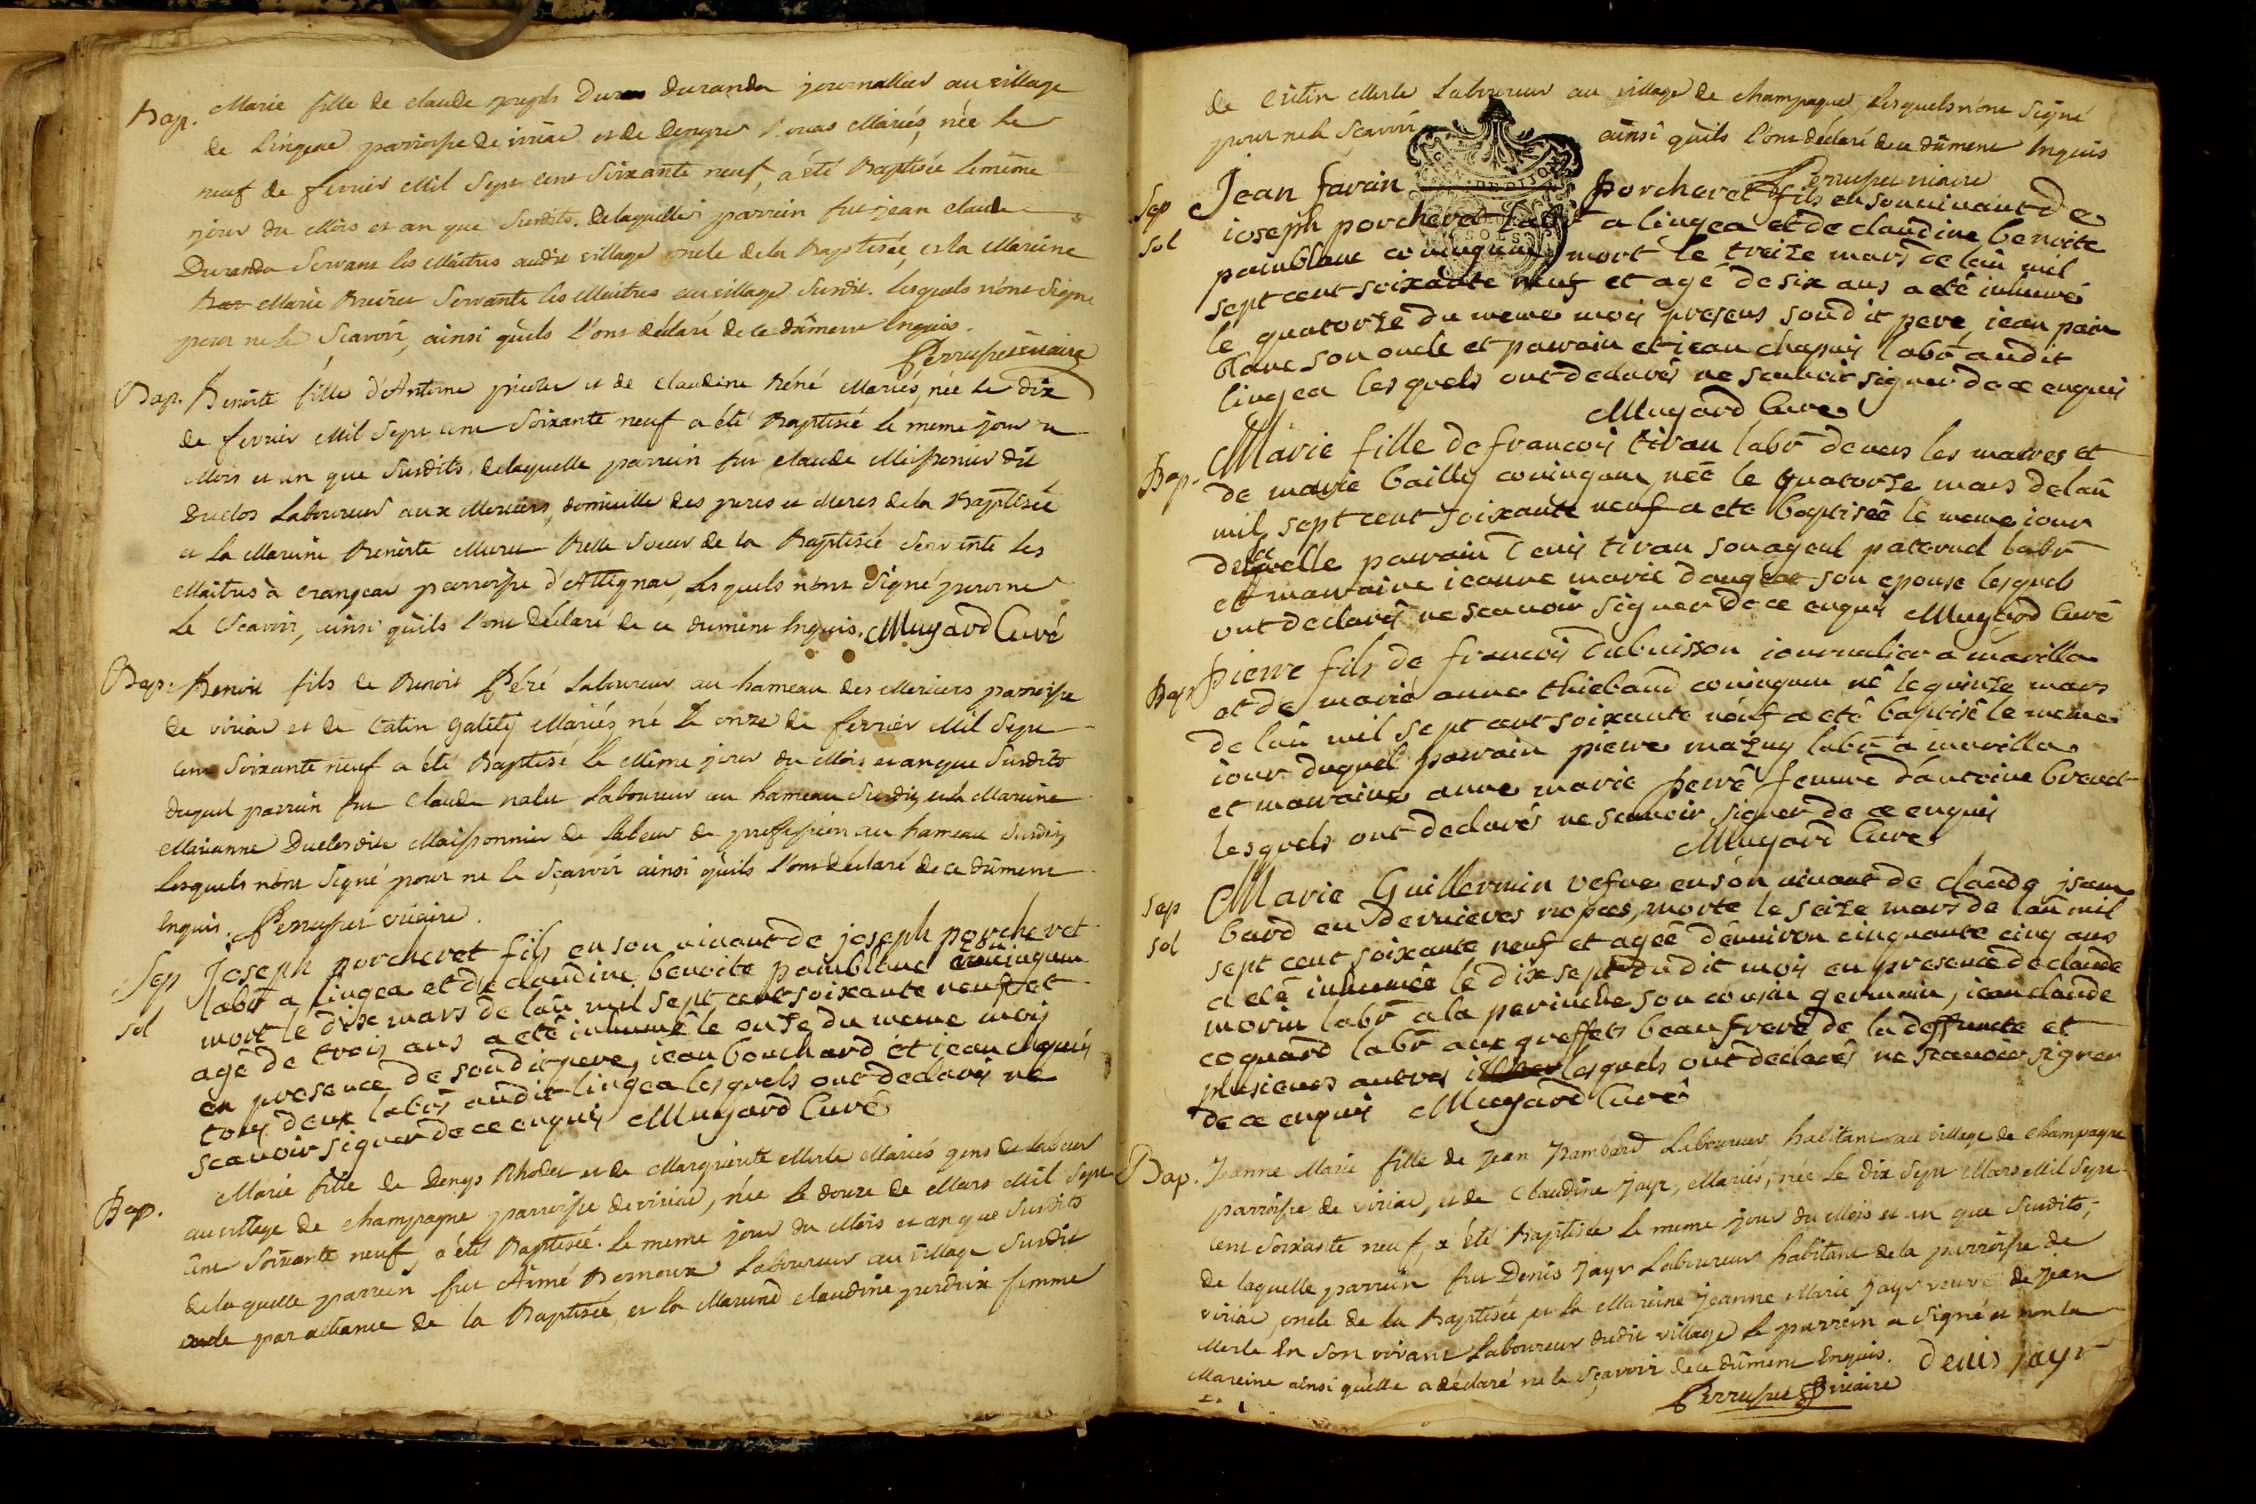 Bap. Marie fille de claude joseph Duran duranda journallier au village
de Lingeac parroisse de viriac et de Denyse Mariés, née le
neuf de fevrier Mil Sept cent Soixante neuf, a été Baptisée le même
jour du Mois et an que Susdits. de laquelle parrein fut jean claude
Duranda Servant les Maitres audit village oncle de la Baptisée, et la Mareine
Marie Servante les Maitres au village Susdit. lesquels n'ont Signé
pour ne le Scavoir, ainsi qu'ils l'ont déclaré de ce dûment Enquis.
Perrusset vicaire
Bap. Benoite fille d'Antoine et de claudine Réné Mariés, née le dix
de fevrier Mil Sept cent Soixante neuf a été Baptisée le meme jour du
Mois et an que Susdits. de laquelle parrein fut claude Meissonnier dit
Duclos Laboureur aux Merciers, domicille des peres et Meres de la Baptisée
et la Mareine Benoite Muret Belle Soeur de la Baptisée Servante les
Maitres à crangeac parroisse d'Attignac, lesquels n'ont Signé pour ne
le Scavoir, ainsi qu'ils l'ont déclaré de ce dument Enquis. Muyard Curé
Bap. Benoit fils de Benoit Réré Laboureur au hameau des Merciers parroisse
de viriac et de Catin Galety Mariés né le onze de fevrier Mil Sept
cent Soixante neuf a été Baptisé le Même jour du Mois et an que Susdits
duquel parrein fut Claude nalet Laboureur au hameau Susdit, et la Mareine
Marianne Duclos dite Maissonnier de Labeur de proffession au hameau Susdit,
Lesquels n'ont Signé pour ne le Sçavoir ainsi qu'ils l'ont déclaré de ce dûment
Enquis. Perrusset vicaire.
Sep Joseph porcheret fils en son vivant de joseph porcheret
labr a lingea et de claudine benoite painblanc coniugum
sol mort le dix mars de lan mil sept cent soixante neuf et
agé de trois ans a eté inhumé le onze du meme mois
en presence de son dit pere, iean bouchard et iean chapuis
tous deux labrs audit lingea lesquels ont declarés ne
scavoir signer de ce enquis Muyard Curé
Bap. Marie fille de Denys Rhodet et de Marguerite Merle Mariés gens de Labeur
au village de champagne parroisse de viriac, née le douze de Mars Mil Sept
cent Soixante neuf, a été Baptisée. le meme jour du Mois et an que Susdits
de laquelle parrein fut Aimé Bernoux Laboureur au village Susdit
oncle par alliance de la Baptisée, et la Mareine claudine perdrix femme
de Merle Laboureur au village de champagne, lesquels n'ont Signé
pour ne le Sçavoir ainsi qu'ils l'ont déclaré de ce dûment Enquis
Perrusset vicaire
Sep Jean favain porcheret fils en son vivant de
sol ioseph porcheret labr a lingea et de claudine benoite
painblanc coniugum mort le treize mars de lan mil
sept cent soixante neuf et agé de six ans a eté inhumé
le quatorze du meme mois presens son dit pere, iean pain
blanc son oncle et parrain et iean chapuis labr audit
lingea lesquels ont declarés ne scavoir signer de ce enquis
Muyard Curé
Bap. Marie fille de francois tivan labr de vers les mares et
de marie bailly coniugum, née le quatorze mars de lan
mil sept cent soixante neuf a eté baptisée le meme iour
de laquelle parrain Denis tivan son ayeul paternel labr
et marraine ieanne marie son epouse lesquels
ont declarés ne scavoir signer de ce enquis Muyard Curé
Bap Pierre fils de francois Dubuisson iournalier a mavilla
et de marie anne thiebaud coniugum né le quinze mars
de lan mil sept cent soixante neuf a eté baptisé le meme
iour duquel parrain pierre mazuy labr a
et marraine anne marie perré femme d'antoine brevet
lesquels ont declarés ne scavoir signer de ce enquis
Muyard Curé
Sep Marie Guillermin vefve en son vivant de claude jsam
sol bard en dernieres nopces, morte le seize mars de lan mil
sept cent soixante neuf et agée d'environ cinquante cinq ans
a eté inhumée le dix sept du dit mois en presence de claude
morin labr a la perinche son cousin germain, iean claude
coquard labr aux greffets beau frere de la deffuncte et
plusieurs autres lesquels ont declarés ne scavoir signer
de ce enquis Muyard Curé
Bap. Jeanne Marie fille de jean jsambard Laboureur habitant au village de champagne
parroisse de viriac, et de Claudine jayr, Mariés; née le dix Sept Mars Mil Sept
cent Soixante neuf, a été Baptisée le meme jour du Mois et an que Susdits;
de laquelle parrein fut Denis jayr Laboureur habitant de la parroisse de
viriac, oncle de la Baptisée, et la Mareine jeanne Marie jayr veuve de jean
Merle En Son vivant Laboureur dudit village le parrein a Signé et non la
Mareine ainsi qu'elle a déclaré ne le Sçavoir de ce dûment Enquis. denis jayr
Perrusset vicaire